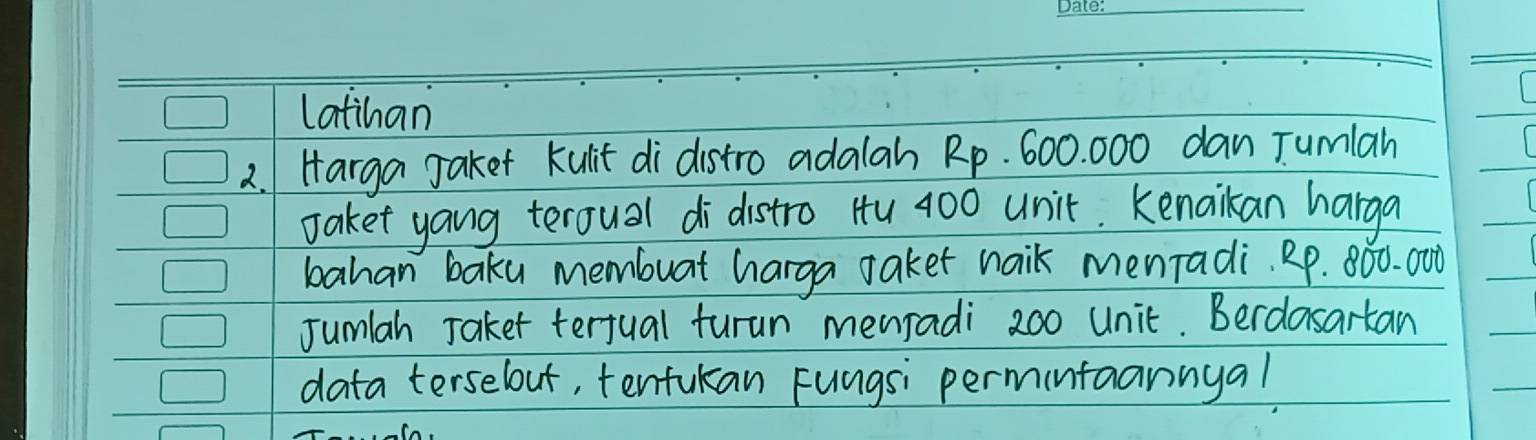 Date:
Latihan
2. Harga Jaket Kulit di distro adalah Rp. 600.000 dan Jumlah
Jaket yang terjual di distro itu 400 unit. Kenaikan harga
bahan baku membuat harga Jaket naik menjadi. Rp. 800.000
Jumlah Jaket terjual turun menjadi 200 Unit. Berdasarkan
data tersebut, tentukan Fungsi permintaannya!